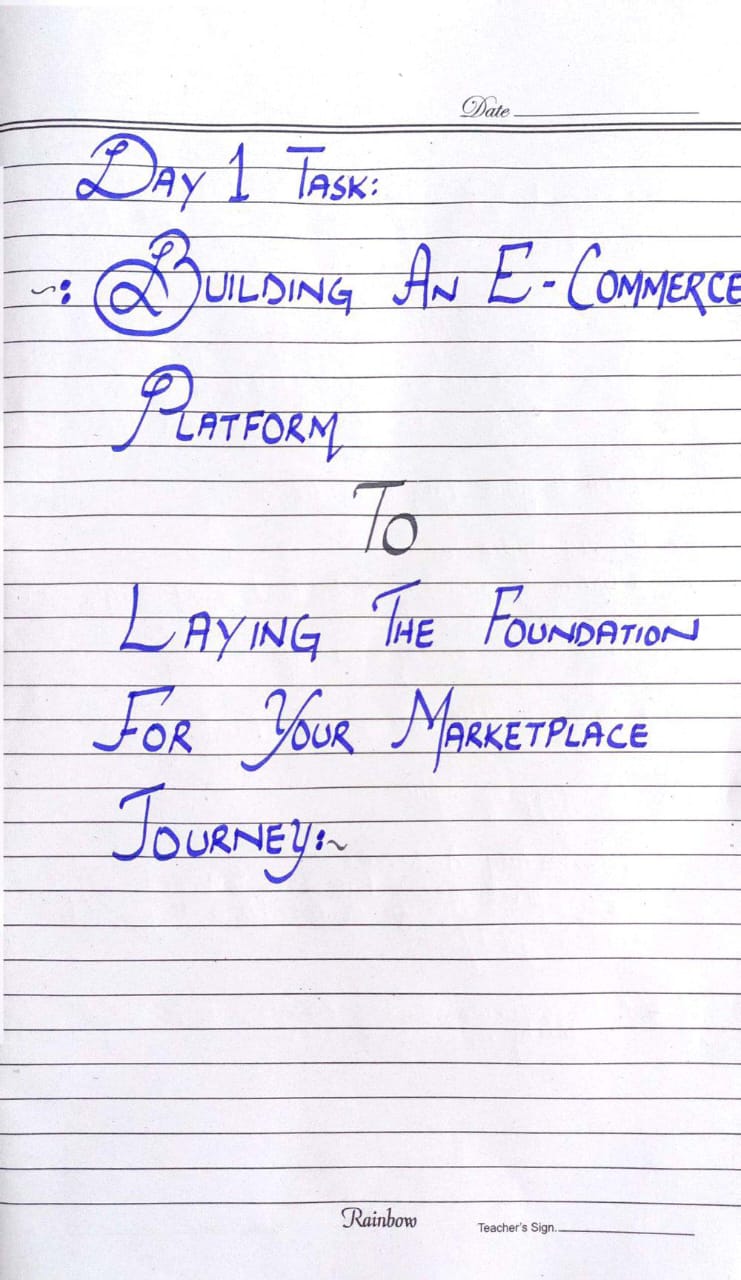 Date
Day 1 Task:
~: Building An E-Commerce
Platform
To
Laying The Foundation
For Your Marketplace
Journey:~
Rainbow
Teacher's Sign.